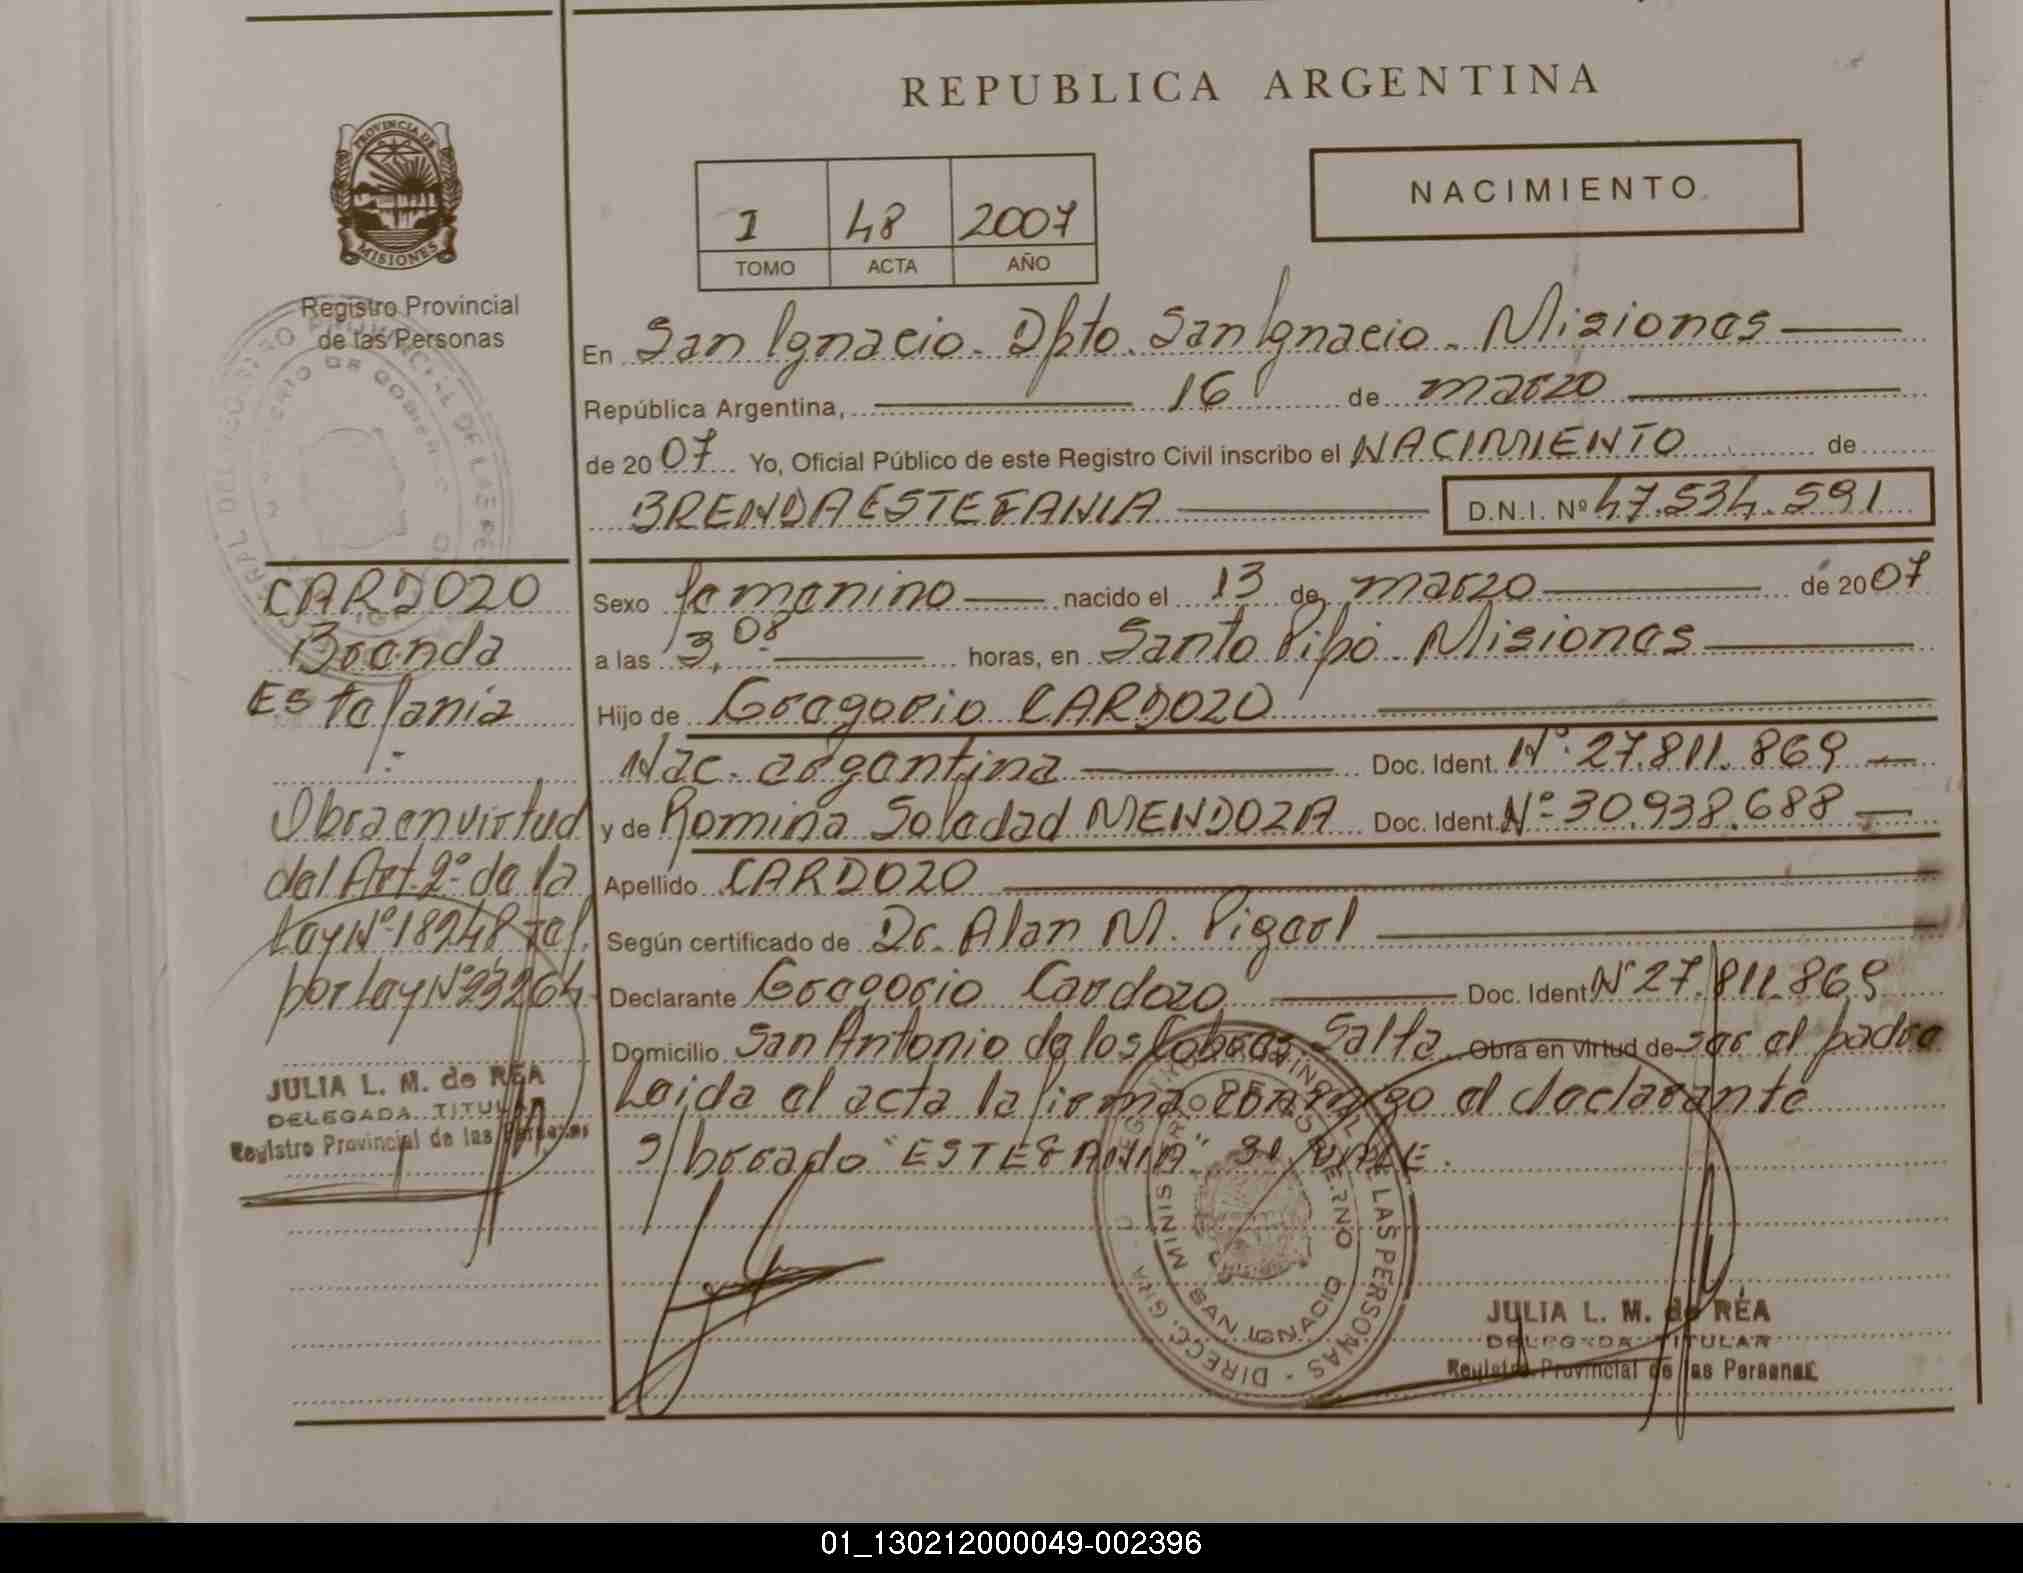 REPUBLICA ARGENTINA
PROVINCIA DE
MISIONES
Registro Provincial
de las Personas
NACIMIENTO
I 48 2007
TOMO ACTA AÑO
En San Ignacio - Dpto. San Ignacio - Misiones
República Argentina, 16 de marzo
de 2007 Yo, Oficial Público de este Registro Civil inscribo el NACIMIENTO de
BRENDA ESTEFANIA D.N.I. Nº 47.534.591
CARDOZO
Brenda
Estefanía
.-
Obra en virtud
del Art. 2º de la
Ley Nº 18248
por Ley Nº 23264
JULIA L. M. de REA
DELEGADA TITULAR
Registro Provincial de las Personas
Sexo femenino nacido el 13 de marzo de 2007
a las 3,08.- horas, en Santo Pipó - Misiones
Hijo de Gregorio CARDOZO
Nac. argentina Doc. Ident. Nº: 27.811.869
y de Romina Soledad MENDOZA Doc. Ident. Nº 30.938.688
Apellido CARDOZO
Según certificado de Dr. Alan M.
Declarante Gregorio Cardozo Doc. Ident. Nº 27.811.869
Domicilio San Antonio de los Cobres - Salta Obra en virtud de ser el padre
Leida el acta la firma conmigo el declarante
S/borrado "ESTEFANIA" SI VALE.
DIRECC. GRAL. DEL REGISTRO PROVINCIAL DE LAS PERSONAS
MINISTERIO DE GOBIERNO
SAN IGNACIO
JULIA L. M. de REA
DELEGADA TITULAR
Registro Provincial de las Personas
01_130212000049-002396